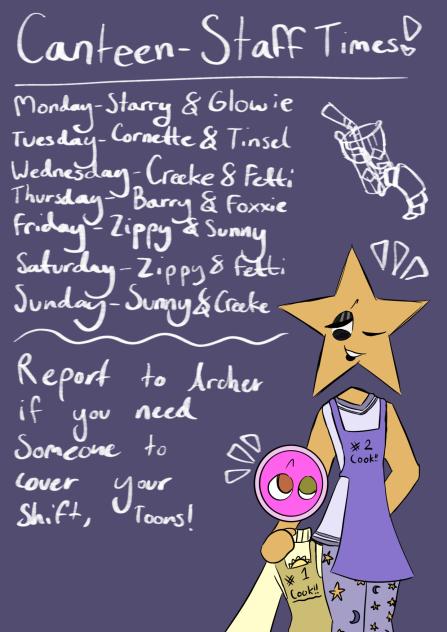 Canteen-Staff Times!
Monday-Starry & Glowie
Tuesday-Cornette & Tinsel
Wednesday-Creeke & Fetti
Thursday-Barry & Foxxie
Friday-Zippy & Sunny
Saturday-Zippy & Fetti
Sunday-Sunny & Creeke
Report to Archer
if you need
Someone to
cover your
Shift, Toons!
#2
Cook!!
#1
Cook!!